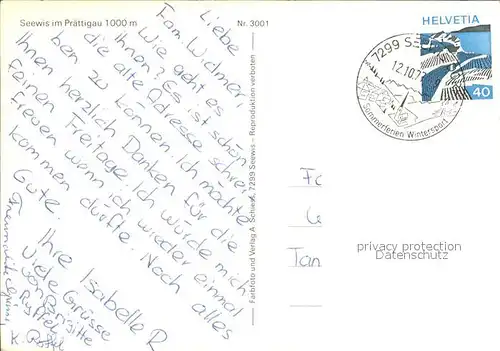 Seewis im Prättigau 1000 m
Nr. 3001
Liebe
Fam. Widmer
Wie geht es
Ihnen? Es ist schön
die alte Adresse schrei
ben zu können. Ich möchte
Ihnen herzlich Danken für die
feinen Freitage. Ich würde mich
freuen wenn ich wieder einmal
kommen dürfte. Noch alles
Gute.
Ihre Isabelle R
Viele Grüsse
von Brigitte
Farbfoto und Verlag A. Schlegel, 7299 Seewis — Reproduktion verboten
7299 SEE
12.10.7
Sommerferien Wintersport
HELVETIA
40
privacy protection
Datenschutz